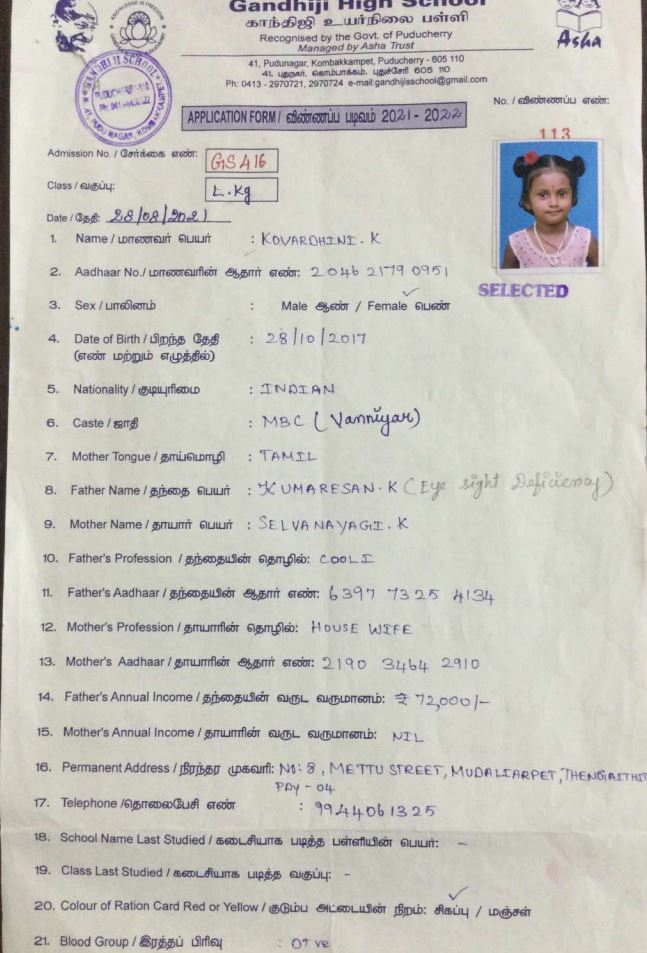 Gandhiji High School
காந்திஜி உயர்நிலை பள்ளி
Recognised by the Govt. of Puducherry
Managed by Asha Trust
Asha
41, Pudunagar, Kombakkampet, Puducherry - 605 110
41, புதுநகர், கொம்பாக்கம், புதுச்சேரி 605 110
Ph: 0413 - 2970721, 2970724 e-mail:gandhijisschool@gmail.com
No. / விண்ணப்ப எண்:
APPLICATION FORM / விண்ணப்ப படிவம் 2021 - 2022
113
Admission No. / சேர்க்கை எண்: GS 416
Class / வகுப்பு: L.Kg
Date / தேதி: 28/08/2021
1. Name / மாணவர் பெயர் : KOVARDHINI. K
2. Aadhaar No./ மாணவரின் ஆதார் எண்: 2046 2179 0951
SELECTED
3. Sex / பாலினம் : Male ஆண் / Female பெண்
4. Date of Birth / பிறந்த தேதி : 28/10/2017
(எண் மற்றும் எழுத்தில்)
5. Nationality / குடியுரிமை : INDIAN
6. Caste / ஜாதி : MBC (Vanniyar)
7. Mother Tongue / தாய்மொழி : TAMIL
8. Father Name / தந்தை பெயர் : KUMARESAN. K (Eye sight Deficiency)
9. Mother Name / தாயார் பெயர் : SELVANAYAGI. K
10. Father's Profession / தந்தையின் தொழில்: COOLI
11. Father's Aadhaar / தந்தையின் ஆதார் எண்: 6397 7325 4134
12. Mother's Profession / தாயாரின் தொழில்: HOUSE WIFE
13. Mother's Aadhaar / தாயாரின் ஆதார் எண்: 2190 3464 2910
14. Father's Annual Income / தந்தையின் வருட வருமானம்: ₹ 72,000/-
15. Mother's Annual Income / தாயாரின் வருட வருமானம்: NIL
16. Permanent Address / நிரந்தர முகவரி: NO: 8, METTU STREET, MUDALIARPET, THENGAITHIT
PDY - 04
17. Telephone /தொலைபேசி எண் : 9944061325
18. School Name Last Studied / கடைசியாக படித்த பள்ளியின் பெயர்: -
19. Class Last Studied / கடைசியாக படித்த வகுப்பு: -
20. Colour of Ration Card Red or Yellow / குடும்ப அட்டையின் நிறம்: சிகப்பு / மஞ்சள்
21. Blood Group / இரத்தப் பிரிவு : O+ ve